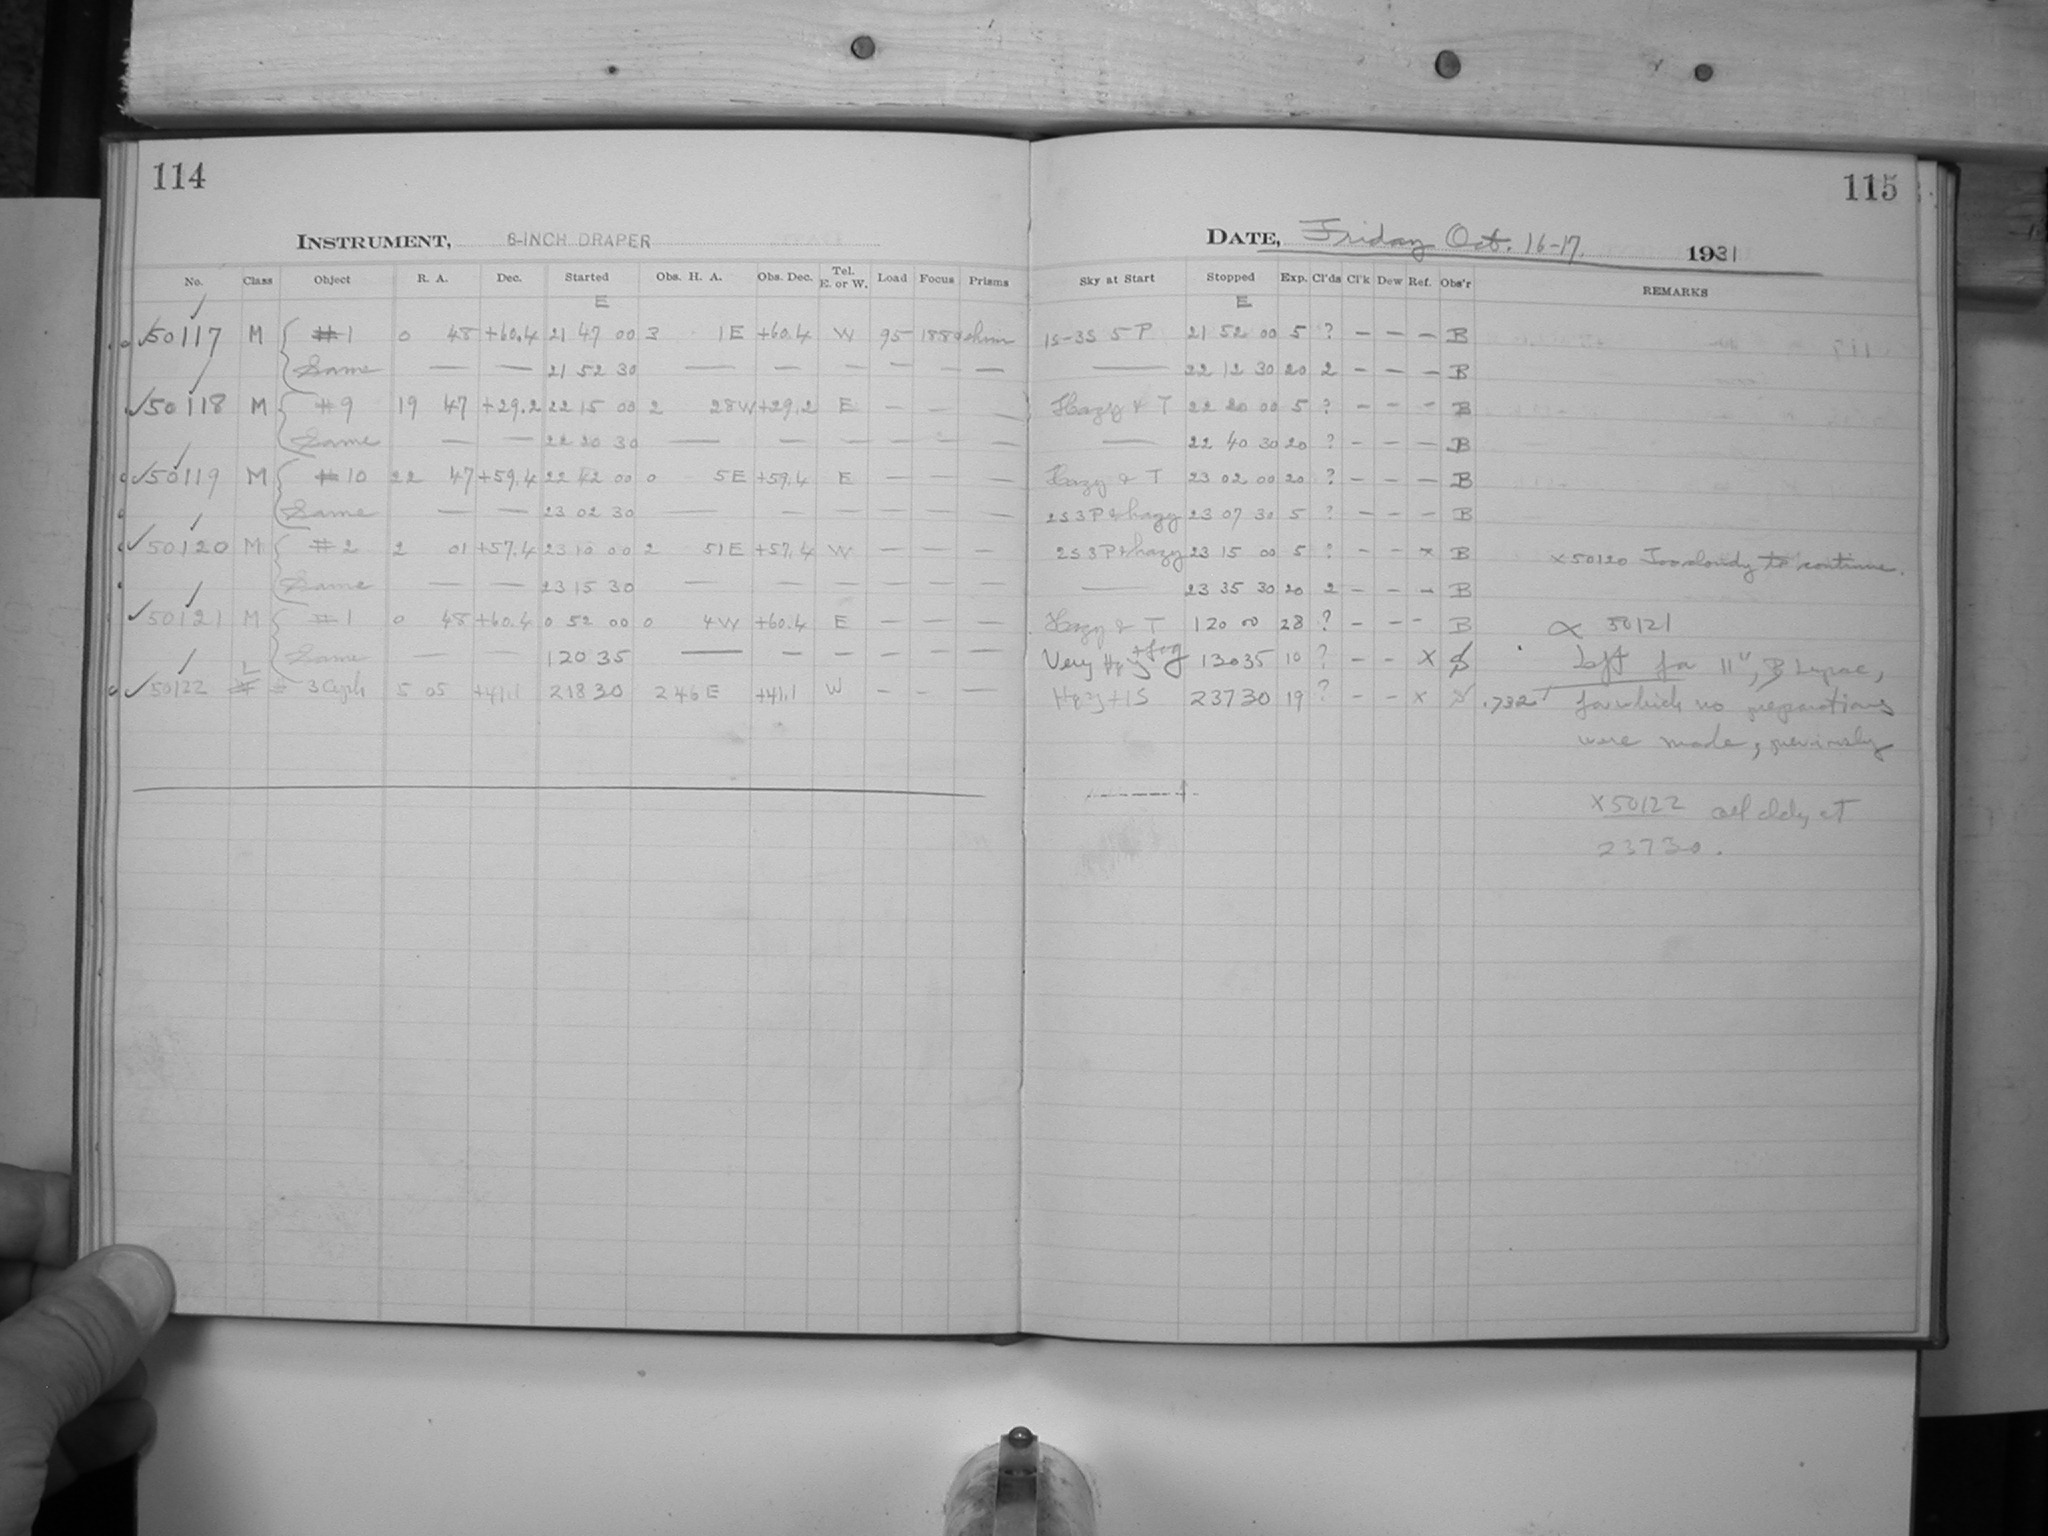 114
INSTRUMENT, 8-INCH DRAPER
No. Class Object R. A. Dec. Started Obs. H. A. Obs. Dec. Tel. E. or W. Load Focus Prisms
E
✓50117 M #1 0 48 +60.4 21 47 00 3 1E +60.4 W 95
Same — — 21 52 30 — — — — — —
✓50118 M #9 19 47 +29.2 22 15 00 2 28W +29.2 E — — —
Same — — 22 20 30 — — — — — —
✓50119 M #10 22 47 +59.4 22 42 00 0 5E +59.4 E — — —
Same — — 23 02 30 — — — — — —
✓50120 M #2 2 01 +57.4 23 10 00 2 51E +57.4 W — — —
Same — — 23 15 30 — — — — — —
✓50121 M #1 0 48 +60.4 0 52 00 0 4W +60.4 E — — —
Same — — 12035 — — — — — —
✓50122 L 5 05 +41.1 21830 246E +41.1 W — — —
115
DATE, Friday Oct. 16-17. 1931
Sky at Start Stopped Exp. Cl'ds Cl'k Dew Ref. Obs'r REMARKS
E
1S-3S 5P 21 52 00 5 ? — — — B
— 22 12 30 20 2 — — — B
Hazy & T 22 20 00 5 ? — — — B
— 22 40 30 20 ? — — — B
Hazy & T 23 02 00 20 ? — — — B
2S3P & hazy 23 07 30 5 ? — — — B
2S3P & hazy 23 15 00 5 ? — — x B x50120 Too cloudy to continue.
— 23 35 30 20 2 — — — B
Hazy & T 120 00 28 ? — — - B ∝ 50121
Very Hazy + fog 13035 10 ? — — X left for 11",
Hazy + 1S 23730 19 ? — — x .732 for which no preparations
were made, previously
x50122 all cldy at
23730.